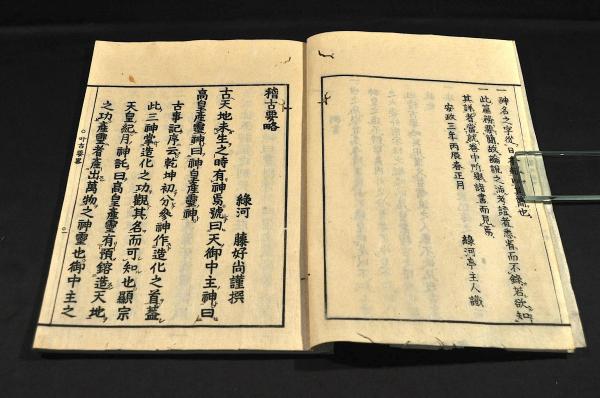 一神名之字從日
一此篇務要簡故論説之
其詳者當就卷中所擧諸書而見焉
安政三年丙辰春正月
綠河亭主人識
稽古要略
綠河 藤好尚謹撰
古天地未生之時有神焉號曰天御中主神曰
高皇産靈神曰神皇産靈神
古事記序云乾坤初分參神作造化之首蓋
此三神掌造化之功觀其名而可知也顯宗
天皇紀月神託曰高皇産靈有預鎔造天地
之功産靈者産出萬物之神靈也御中主之